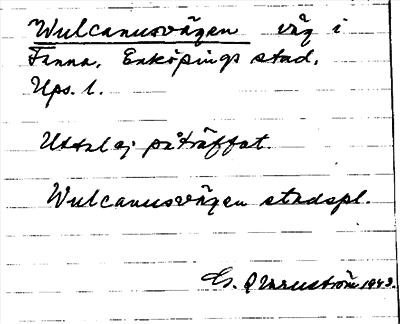 Wulcanusvägen väg i
Fanna, Enköpings stad,
Ups. l.
Uttal ej påträffat.
Wulcanusvägen stadspl.
1943.